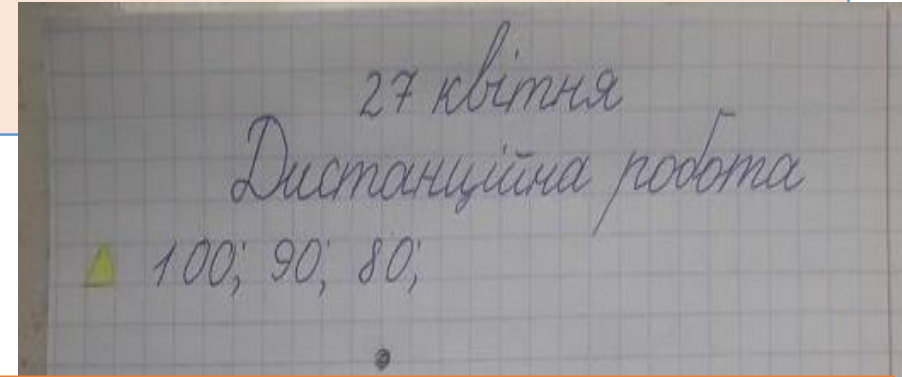 27 квітня
Дистанційна робота
100; 90; 80;